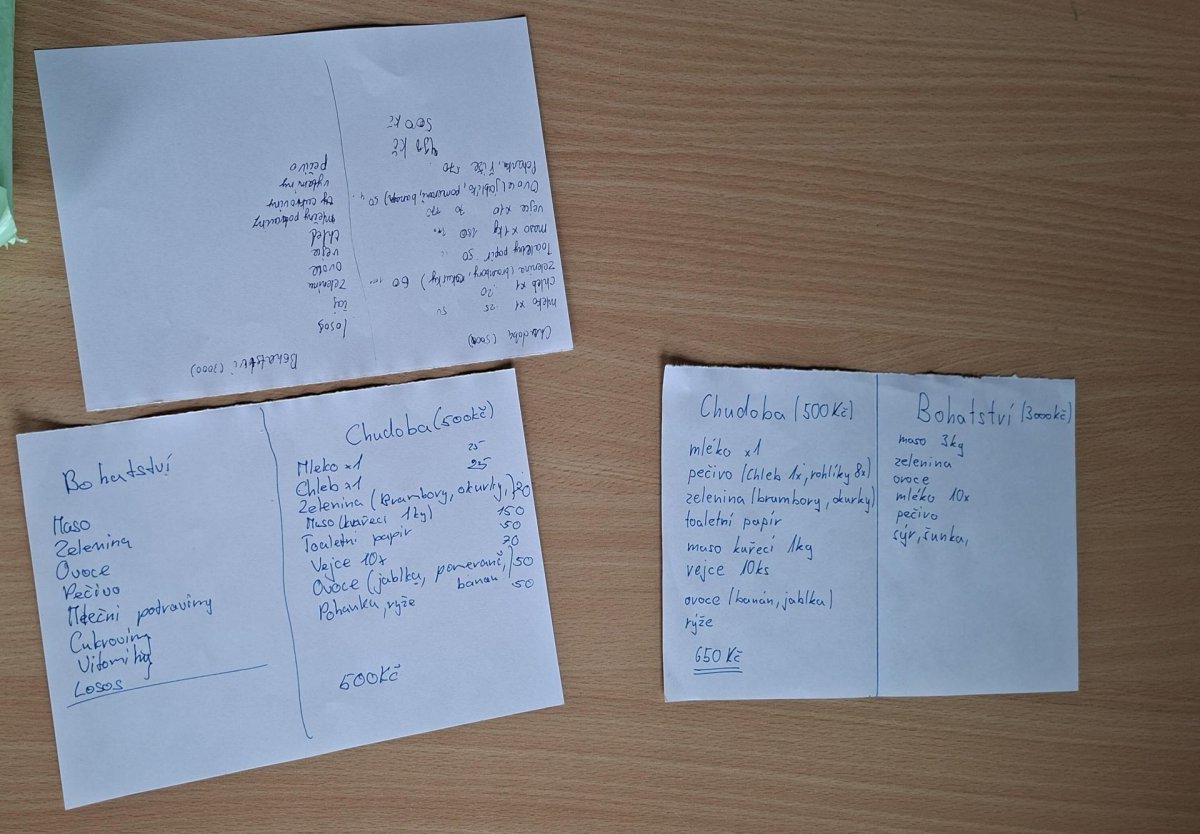 Chudoba (500)
mleko x1 25
chleb x1 20
Zelenina (brambory, okurky) 60
Toaletny papir 50
maso x 1kg 150
vejce x10 70
Ovoce (jablko, pomeranč, banan) 50
Pohanka, rýže x70
490 kč
500 kč
Bohatstvi (3000)
losos
čaj
Zelenina
ovoce
vejce
chleb
mlečny potraviny
cukroviny
vytaminy
pečivo
Bohatství
Maso
Zelenina
Ovoce
Pečivo
Mlečni potraviny
Cukroviny
Vitaminy
Losos
Chudoba (500Kč)
Mleko x1 25
Chleb x1 25
Zelenina (Brambory, okurky,) 70
Maso (kuřeci 1kg) 150
Toaletní papír 50
Vejce 10x 70
Ovoce (jablka, pomeranč, banan) 50
Pohanka, ryže 50
500Kč
Chudoba (500Kč)
mléko x1
pečivo (Chleb 1x, rohlíky 8x)
zelenina (brambory, okurky)
toaletní papír
maso kuřecí 1kg
vejce 10ks
ovoce (banán, jablka)
rýže
650 Kč
Bohatství (3000kč)
maso 3kg
zelenina
ovoce
mléko 10x
pečivo
sýr, šunka,